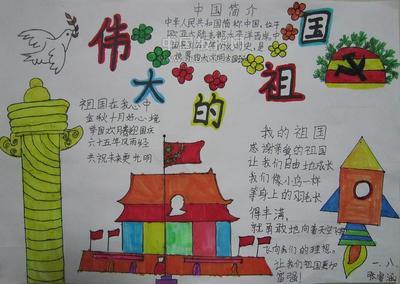 伟大的祖国
中国简介
中华人民共和国简称中国,位于
欧亚大陆东部太平洋西岸,中
祖国在我心中
金秋十月好心境
举国欢腾迎国庆
六十五年风雨经
共祝未来更光明
我的祖国
感谢亲爱的祖国
让我们自由地成长
我们像小鸟一样
等身上的羽毛长
得丰满,
就勇敢地向着天空飞行
飞向我们的理想。
让我们祖国更加
富强!
一.八
张